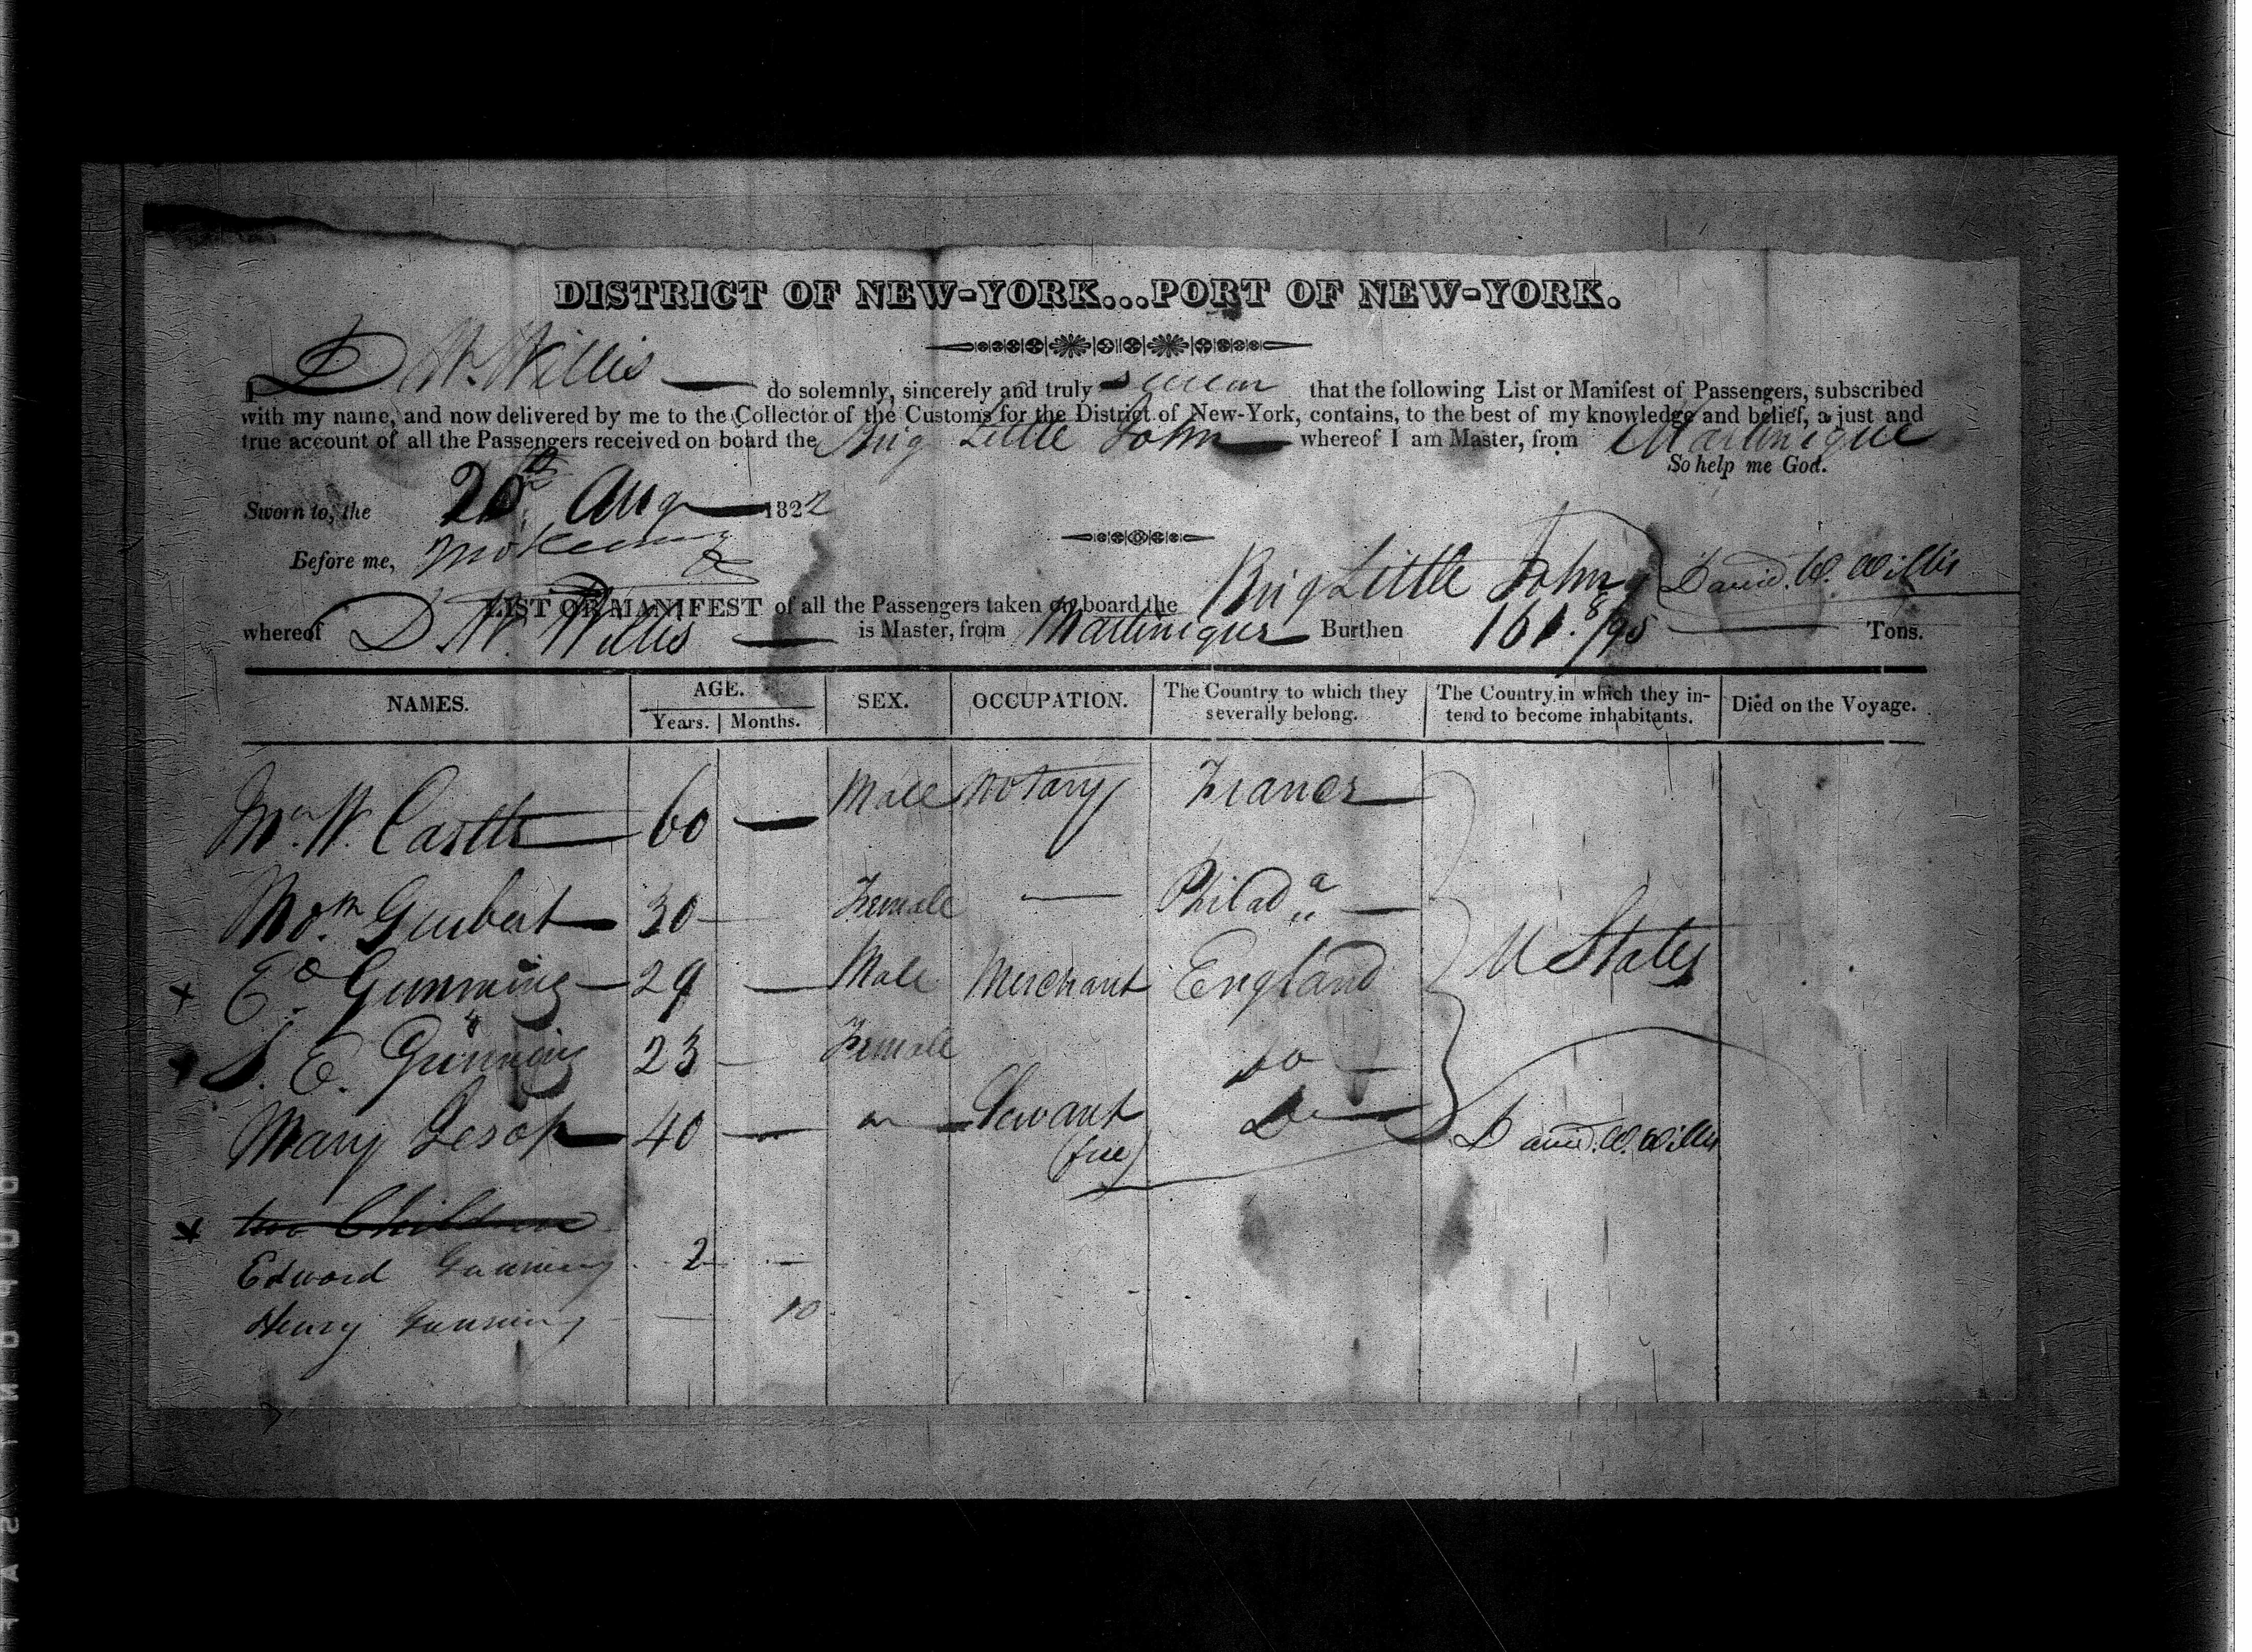 DISTRICT OF NEW-YORK...PORT OF NEW-YORK.
I D. W. Willis — do solemnly, sincerely and truly swear that the following List or Manifest of Passengers, subscribed
with my name, and now delivered by me to the Collector of the Customs for the District of New-York, contains, to the best of my knowledge and belief, a just and
true account of all the Passengers received on board the Brig Little John — whereof I am Master, from Martinique
So help me God.
Sworn to, the Aug — 1822
Before me,
David. W. Willis
LIST OR MANIFEST of all the Passengers taken on board the Brig Little John
whereof D. W. Willis — is Master, from Martinique Burthen 161. 8/95 — Tons.
NAMES. AGE. SEX. OCCUPATION. The Country to which they severally belong. The Country in which they intend to become inhabitants. Died on the Voyage.
Years. Months.
Mr. W. Castle 60 — Male Notary France
Mdm. Guibert 30 — Female — Philada —
Ed. Gunning 29 — Male Merchant England U States
S. E. Gunning 23 — Female do —
Mary 40 — Servant Do
(free) David. W. Willis
two Children
Edward Gunning 2 —
Henry Gunning — 10